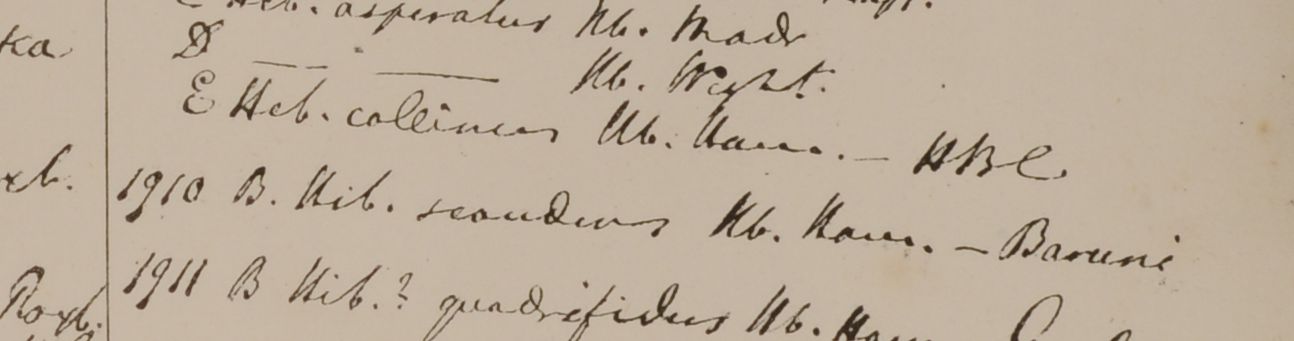 Heb. asperatus Hb. Madr
ka
D — — Hb. Wight.
E Heb. collinus Hb. Ham. — HBC
xb.
1910 B. Hib. scandens Hb. Ham. — Baruni
1911 B Hib.? quadrifidus Hb. Ham
Roxb.